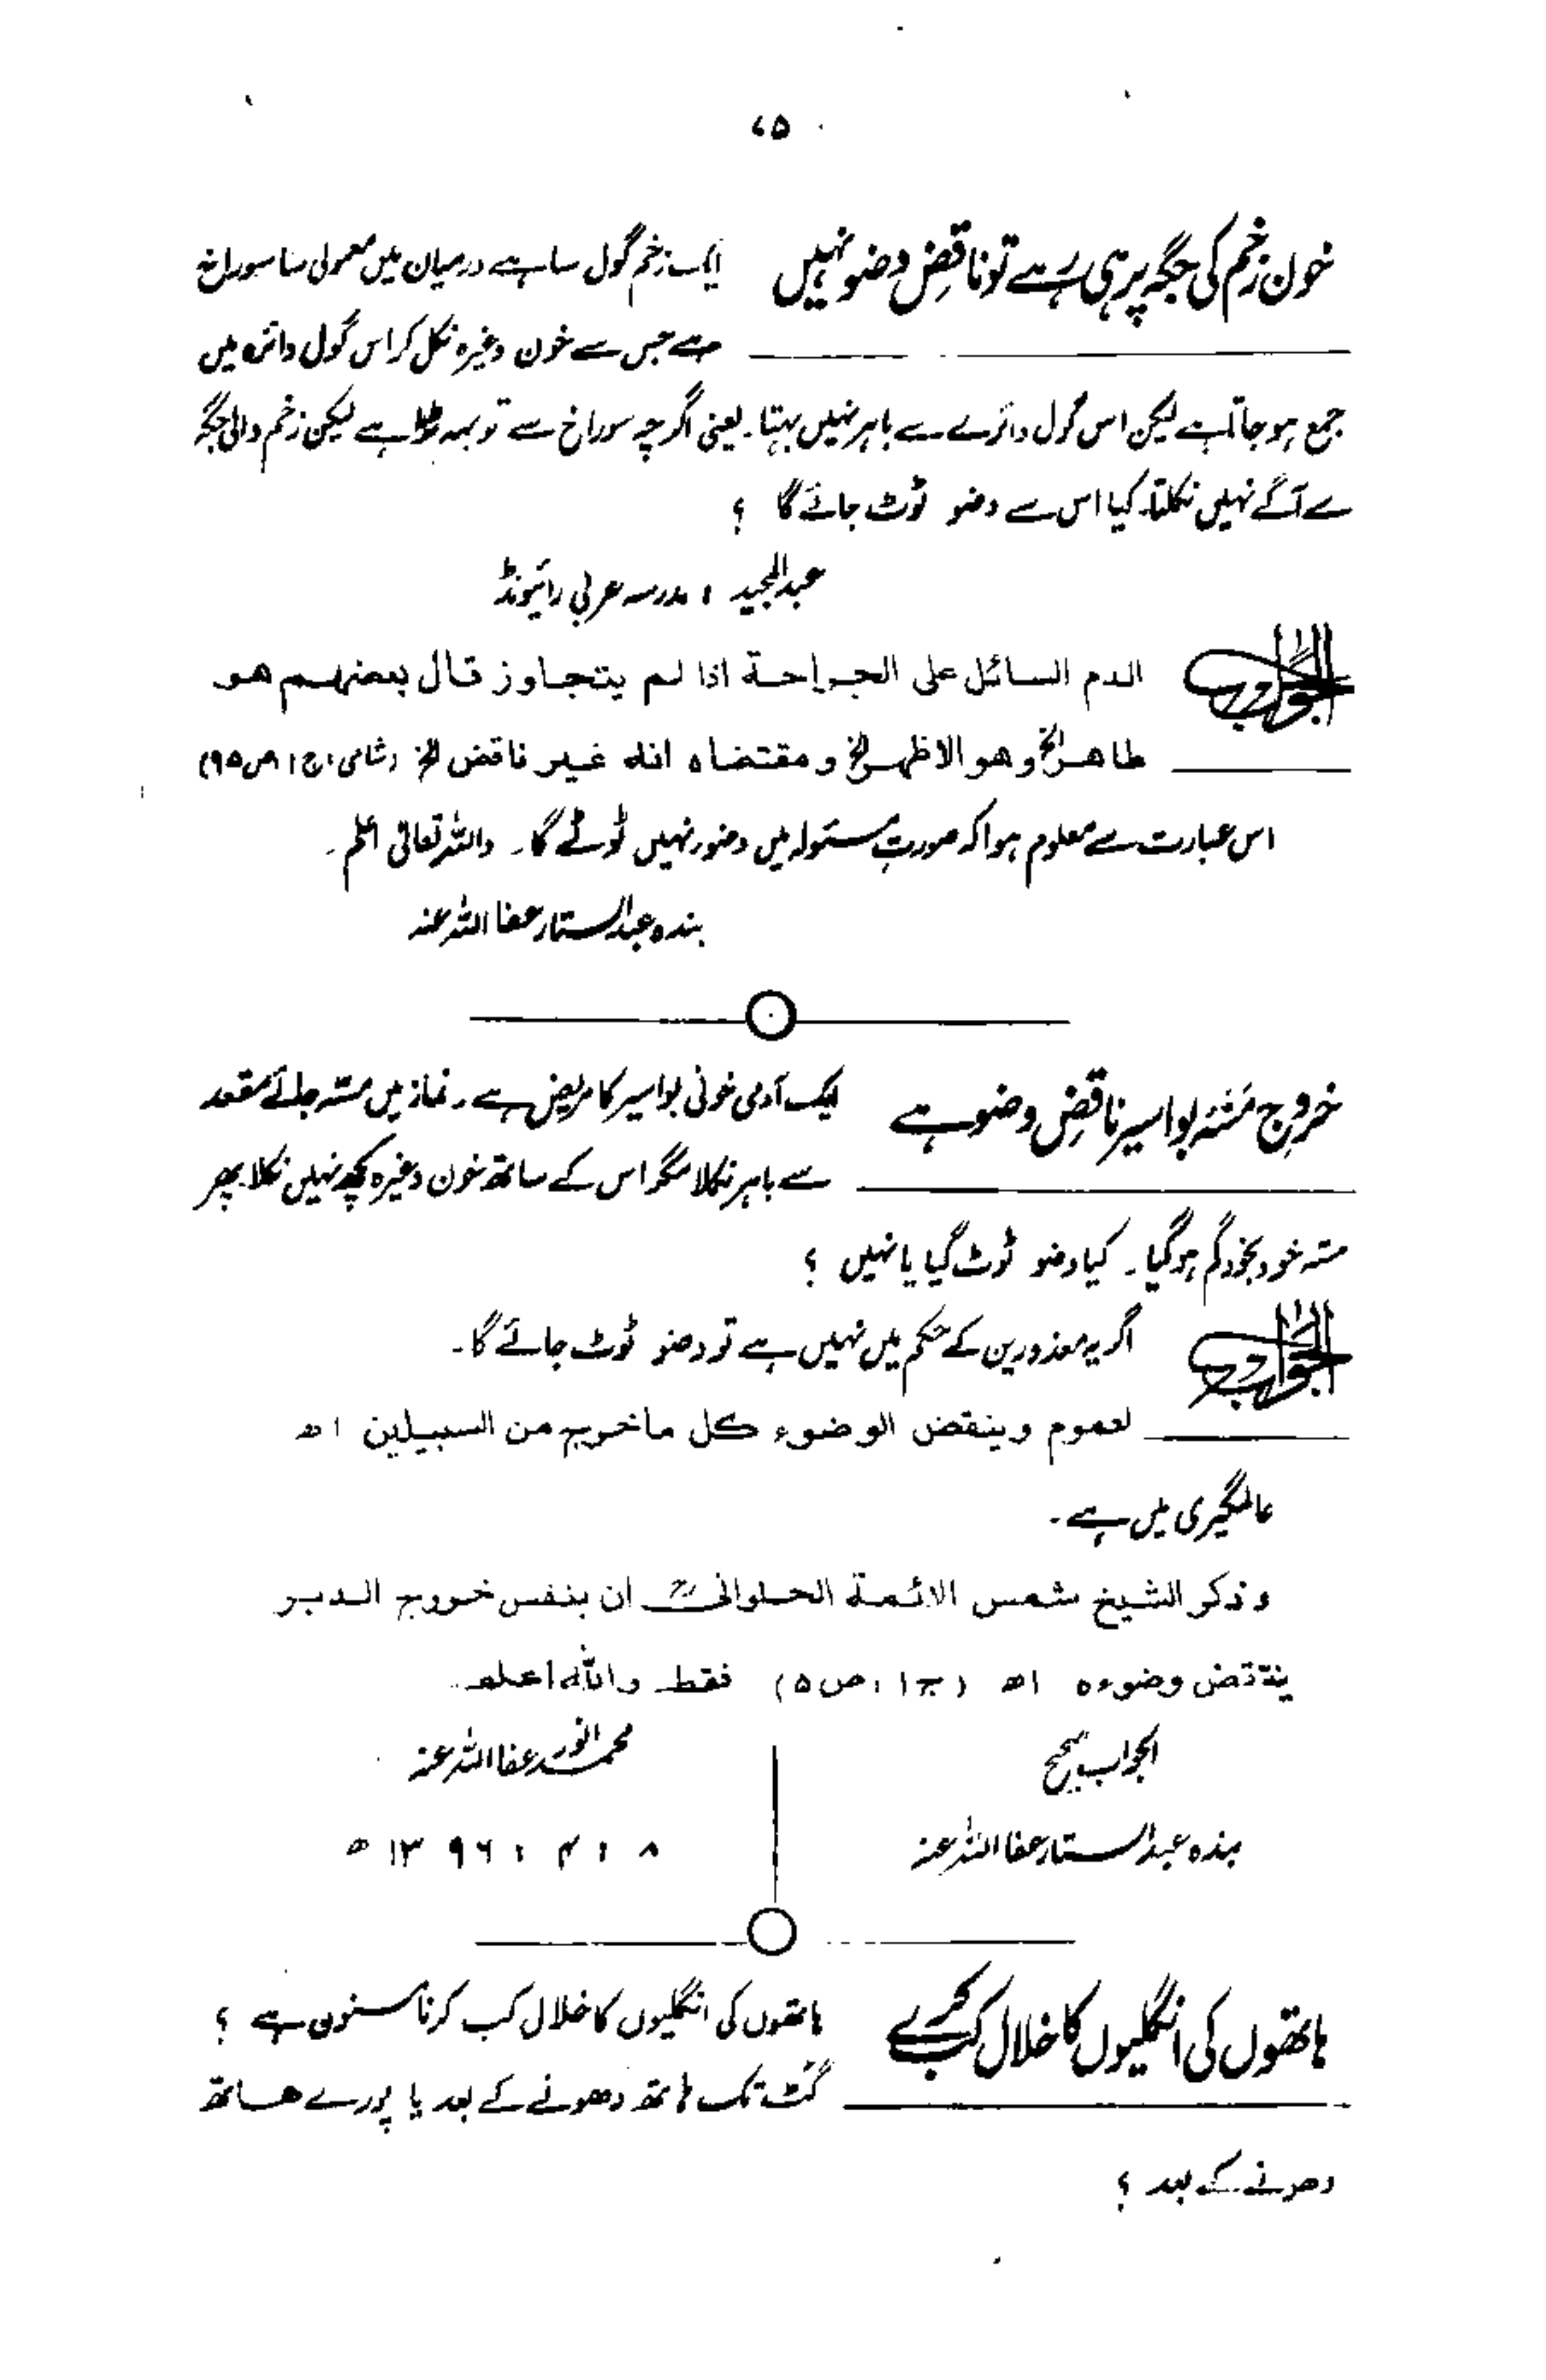 ۷۵
خون زخم کی جگہ پر ہی رہے تو ناقضِ وضو نہیں
ایک زخم گول سا ہے درمیان میں معمولی سا سوراخ
ہے جس سے خون وغیرہ نکل کر اس گول دائرہ میں
جمع ہو جاتا ہے لیکن اس گول دائرے سے باہر نہیں بہتا۔ یعنی اگرچہ سوراخ سے تو بہہ پڑتا ہے لیکن زخم والی جگہ
سے آگے نہیں نکلتا۔ کیا اس سے وضو ٹوٹ جائے گا ؟
عبدالمجید ، مدرسہ عربی رائیونڈ
الجواب
الدم السائل على الجراحة اذا لم يتجاوز قال بعضهم هو
طاهر الخ وهو الاظهر الخ ومقتضاه انه غير ناقض الخ (شامی، ج ۱ ص ۹۵)
اس عبارت سے معلوم ہوا کہ صورتِ مسئولہ میں وضوء نہیں ٹوٹے گا۔ واللہ تعالیٰ اعلم۔
بندہ عبدالستار عفا اللہ عنہ
خروجِ مَسّۂ بواسیر ناقضِ وضو ہے
ایک آدمی خونی بواسیر کا مریض ہے۔ نماز میں مسّہ جائے مقعد
سے باہر نکلا مگر اس کے ساتھ خون وغیرہ کچھ نہیں نکلا۔ پھر
مسّہ خود بخود گم ہو گیا۔ کیا وضو ٹوٹ گیا یا نہیں ؟
الجواب
اگر یہ معذورین کے حکم میں نہیں ہے تو وضو ٹوٹ جائے گا۔
لعموم وينقض الوضوء كل ما خرج من السبيلين اھ
عالمگیری میں ہے۔
وذكر الشيخ شمس الائمة الحلوانیؒ ان بنفس خروج الدبر
ينتقض وضوءه اھ (ج ۱، ص ۵) فقط واللہ اعلم
الجواب صحیح
بندہ عبدالستار عفا اللہ عنہ
محمد انور عفا اللہ عنہ
۸ : ۴ : ۱۳۹۶ ھ
ہاتھوں کی انگلیوں کا خلال کب کرے
ہاتھوں کی انگلیوں کا خلال کب کرنا مسنون ہے ؟
گٹ تک ہاتھ دھونے کے بعد یا پورے ہاتھ
دھونے کے بعد ؟